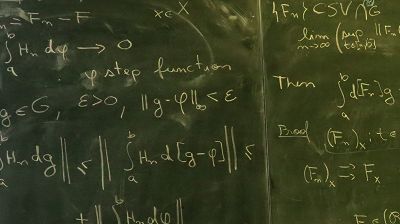 = Fₙ − F x∈X
∫ₐᵇ Hₙ dφ → 0
φ step function
g ∈ G, ε>0, ‖g−φ‖∞ < ε
∫ₐᵇ Hₙ dg ‖ ≤ ‖ ∫ₐᵇ Hₙ d[g−φ] ‖ ≤
+ ‖ ∫ Hₙ dφ ‖
{Fₙ} ⊂ SV ∩ G
lim n→∞ (sup ‖Fₙ
Then ∫ₐᵇ d[Fₙ] g
Proof (Fₙ)ₓ : t ∈
(Fₙ)ₓ ⇉ Fₓ
Fₓ ∈